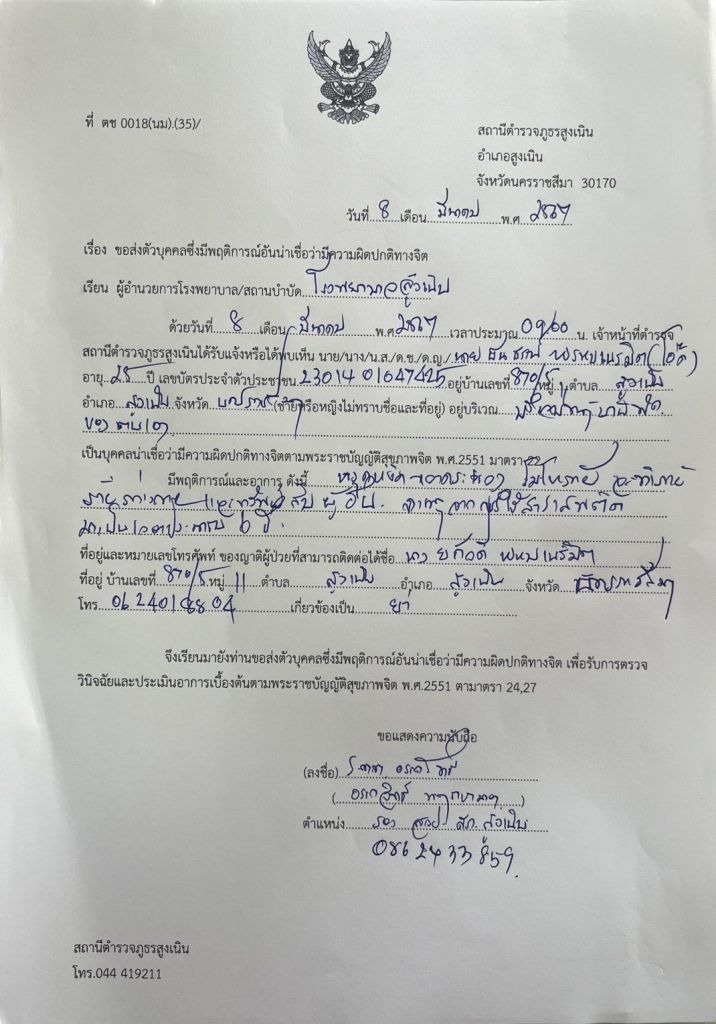 ที่ ตช 0018(นม).(35)/
สถานีตำรวจภูธรสูงเนิน
อำเภอสูงเนิน
จังหวัดนครราชสีมา 30170
วันที่ 8 เดือน มีนาคม พ.ศ. 2567
เรื่อง ขอส่งตัวบุคคลซึ่งมีพฤติการณ์อันน่าเชื่อว่ามีความผิดปกติทางจิต
เรียน ผู้อำนวยการโรงพยาบาล/สถานบำบัด โรงพยาบาลสูงเนิน
ด้วยวันที่ 8 เดือน มีนาคม พ.ศ 2567 เวลาประมาณ 09.00 น. เจ้าหน้าที่ตำรวจ
สถานีตำรวจภูธรสูงเนินได้รับแจ้งหรือได้พบเห็น นาย/นาง/น.ส./ด.ช./ด.ญ./ นาย
อายุ 25 ปี เลขบัตรประจำตัวประชาชน อยู่บ้านเลขที่ 870/5 หมู่ 11 ตำบล สูงเนิน
อำเภอ สูงเนิน จังหวัด (ชายหรือหญิงไม่ทราบชื่อและที่อยู่) อยู่บริเวณ
ของตนเอง
เป็นบุคคลน่าเชื่อว่ามีความผิดปกติทางจิตตามพระราชบัญญัติสุขภาพจิต พ.ศ.2551 มาตรา 22
มีพฤติการณ์และอาการ ดังนี้
ร่างกาย และทรัพย์สิน ผู้อื่น ใช้สารเสพติด
มาเป็นเวลาประมาณ 6 ปี
ที่อยู่และหมายเลขโทรศัพท์ ของญาติผู้ป่วยที่สามารถติดต่อได้ชื่อ นาง
ที่อยู่ บ้านเลขที่ 870/5 หมู่ 11 ตำบล สูงเนิน อำเภอ สูงเนิน จังหวัด นครราชสีมา
โทร. 0624018804 เกี่ยวข้องเป็น ย่า
จึงเรียนมายังท่านขอส่งตัวบุคคลซึ่งมีพฤติการณ์อันน่าเชื่อว่ามีความผิดปกติทางจิต เพื่อรับการตรวจ
วินิจฉัยและประเมินอาการเบื้องต้นตามพระราชบัญญัติสุขภาพจิต พ.ศ.2551 ตามาตรา 24,27
ขอแสดงความนับถือ
(ลงชื่อ)
ตำแหน่ง รอง สวป. สภ. สูงเนิน
086 2433859
สถานีตำรวจภูธรสูงเนิน
โทร.044 419211